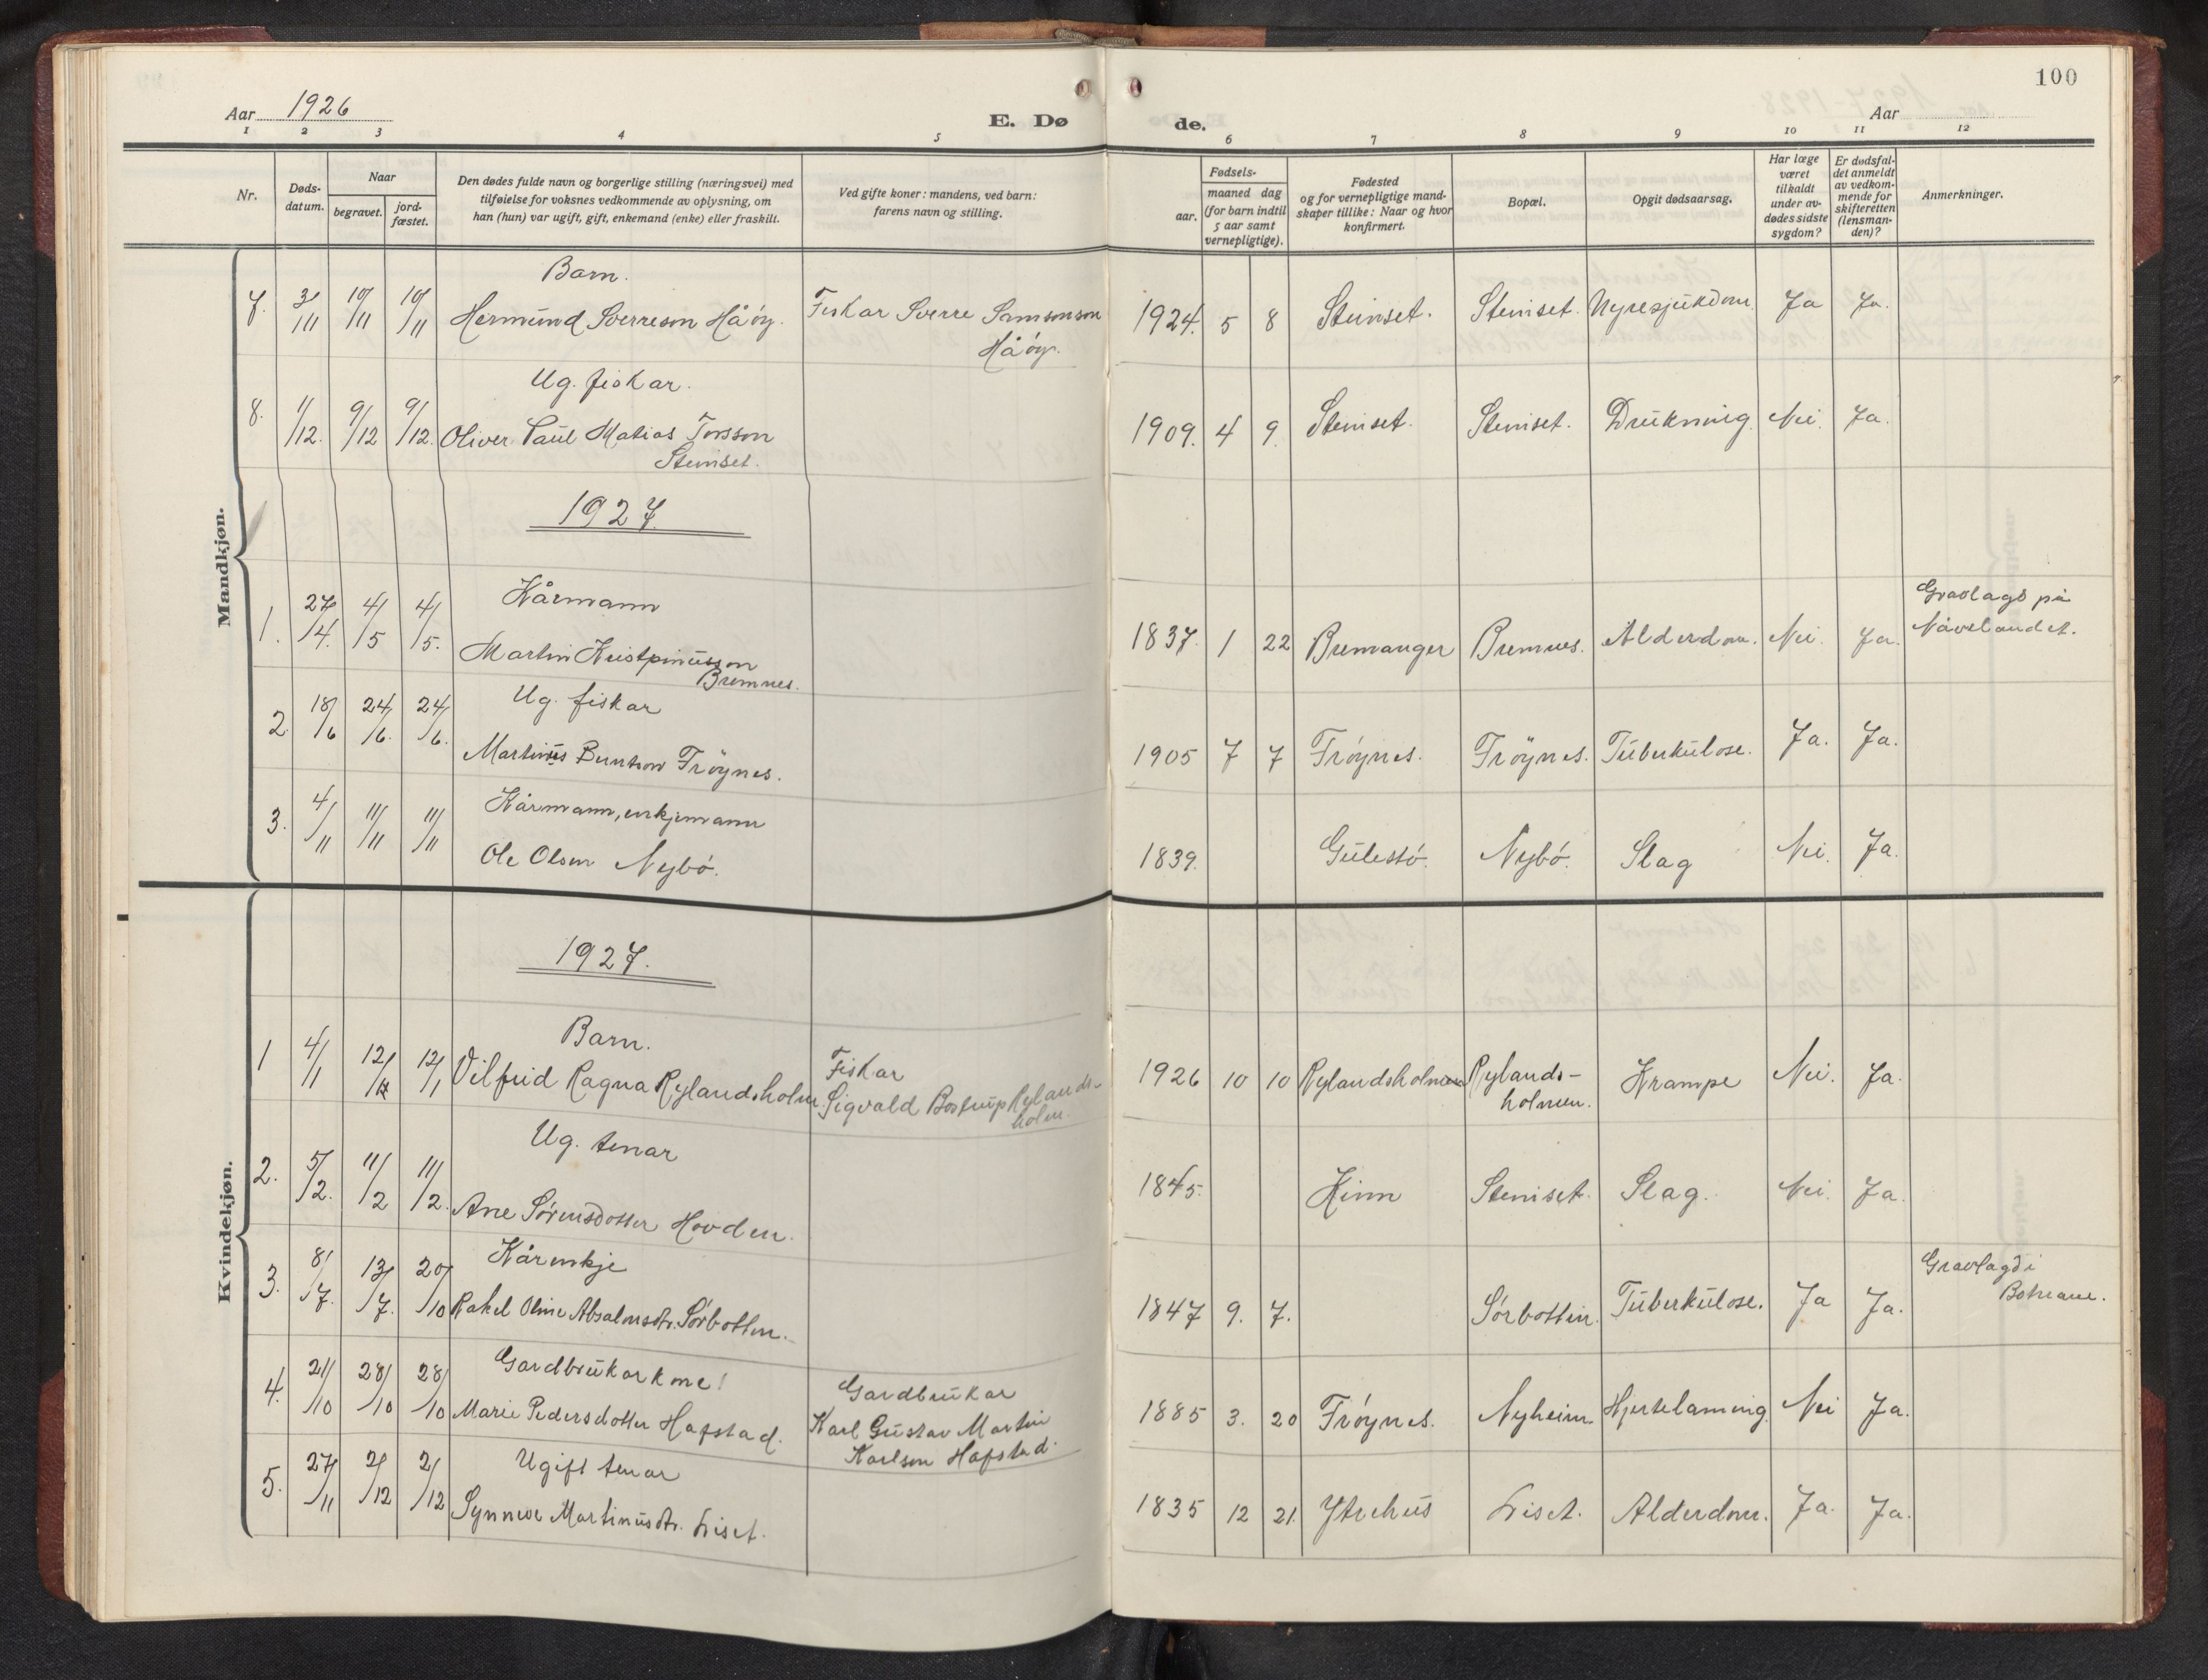 100
Aar 1926
E. Døde.
Aar
1 2 3 4 5 6 7 8 9 10 11 12
Nr.
Døds-datum.
Naar
begravet.
jord-fæstet.
Den dødes fulde navn og borgerlige stilling (næringsvei) med
tilføielse for voksnes vedkommende av oplysning, om
han (hun) var ugift, gift, enkemand (enke) eller fraskilt.
Ved gifte koner: mandens, ved barn:
farens navn og stilling.
Fødsels-
aar.
maaned dag
(for barn indtil
5 aar samt
vernepligtige).
Fødested
og for vernepligtige mand-
skaper tillike: Naar og hvor
konfirmert.
Bopæl.
Opgit dødsaarsag.
Har læge
været
tilkaldt
under av-
dødes sidste
sygdom?
Er dødsfal-
det anmeldt
av vedkom-
mende for
skifteretten
(lensman-
den)?
Anmerkninger.
Mandkjøn.
Barn.
7. 3/11 10/11 10/11 Hermund Sverreson Håöy. Fiskar Sverre Samsonson 1924. 5 8 Steinset. Steinset. Nyresjukdom. Ja Ja.
Håöy.
Ug. fiskar.
8. 1/12. 9/12 9/12. Oliver Paul Matias Torsson 1909. 4 9. Steinset. Steinset. Drukning Nei. Ja.
Steinset.
1927.
Kårmann
1. 27/4. 4/5 4/5. Martin Kristpinusson 1837. 1 22 Bremanger Bremnes. Alderdom. Nei. Ja. Gravlagd på
Bremnes. Nåvelandet.
Ug. fiskar
2. 18/6 24/6. 24/6. Martinus Berntson Fröynes. 1905 7 7 Fröynes. Fröynes. Tuberkulose. Ja. Ja.
Kårmann, enkjemann
3. 4/11 11/11 11/11 Ole Olsen Nybö. 1839. Gulestö. Nybö. Slag Nei. Ja.
Kvindekjøn.
1927.
Barn.
1 4/1 12/1 12/1 Vilfrid Ragna Rylandsholm. Fiskar 1926 10 10 Rylandsholmen Rylands- Krampe Nei. Ja.
Sigvald Bostrup Rylands- holmen.
holm.
Ug. tenar
2. 5/2. 11/2 11/2. Ane Sörensdotter Hovden. 1845. Kinn Steinset. Slag. Nei. Ja.
Kårenkje
3. 8/7. 13/7. 20/10 Rakel Oline Absalonsdtr. Sörbotten. 1847 9. 7. Sörbotten. Tuberkulose. Ja Ja. Gravlagd i
Botnane.
Gardbrukarkone
4. 21/10 28/10 28/10 Marie Pedersdotter Hafstad. Gardbrukar 1885 3. 20 Fröynes. Nyheim. Hjertelaming Nei Ja.
Karl Gustav Martin
Karlson Hafstad.
Ugift tenar
5. 27/11 2/12 2/12 Synneve Martinusdtr. Liset. 1835 12 21. Ytrehus Liset. Alderdom. Ja. Ja.